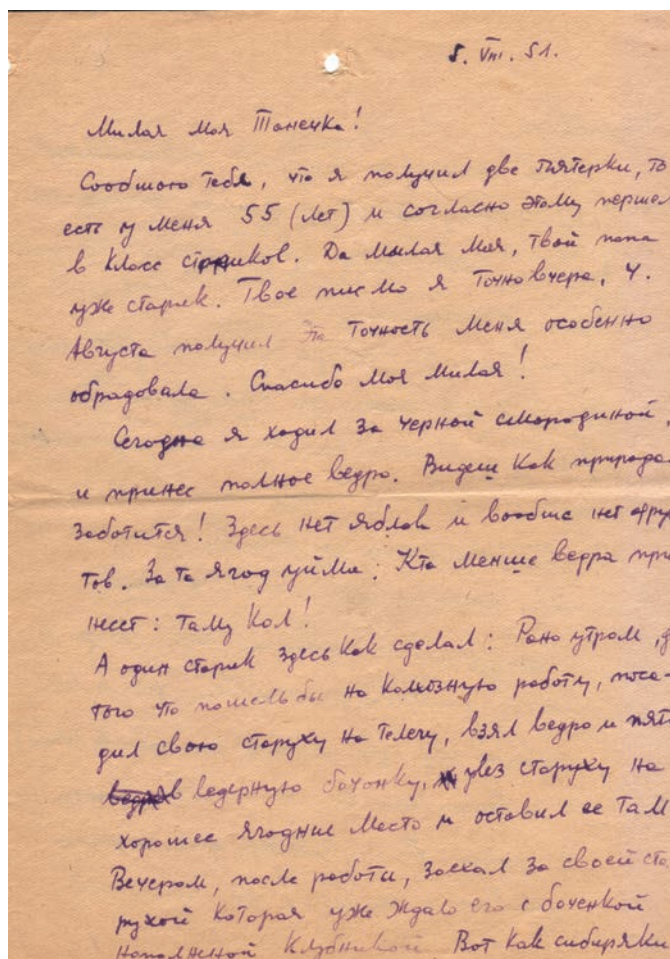 5. VIII. 51.
Милая моя Танечка!
Сообшою тебя, что я получил две пятерки, то
есть у меня 55 (лет) и согласно этому першел
в класс стариков. Да милая моя, твой папа
уже старик. Твое писмо я точно вчера, 4.
Августа получил эта точность меня особенно
обрадовала. Спасибо моя милая!
Сегодна я ходил за черной смородиной,
и принес полное ведро. Видеш как природа
заботится! Здесь нет яблок и вообше нет фрук
тов. За то ягод уйма: Кто менше ведра при
несет: таму кол!
А один старик здесь как сделал: Рано утром, д
того что пошел бы на колхозную работу, поса-
дил свою старуху на телегу, взял ведро и пяти
ведерную бочонку, увез старуху на
хорошее ягодние место и оставил ее там
Вечером, после работи, заехал за своей ста
рухой которая уже ждало его с боченкой
наполненной клубникой. Вот как сибиряки